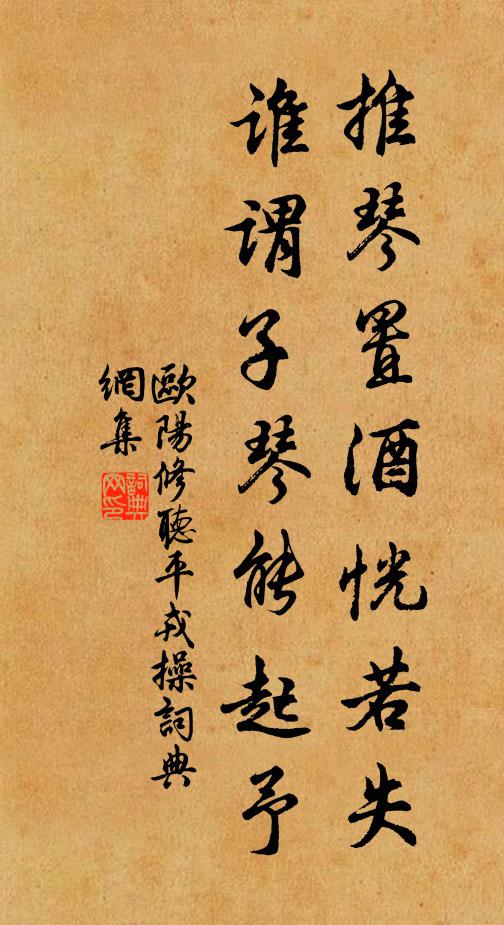 推琴置酒恍若失
誰謂子琴能起予
歐陽修聽平戎操詞典
網集
詞典
网印